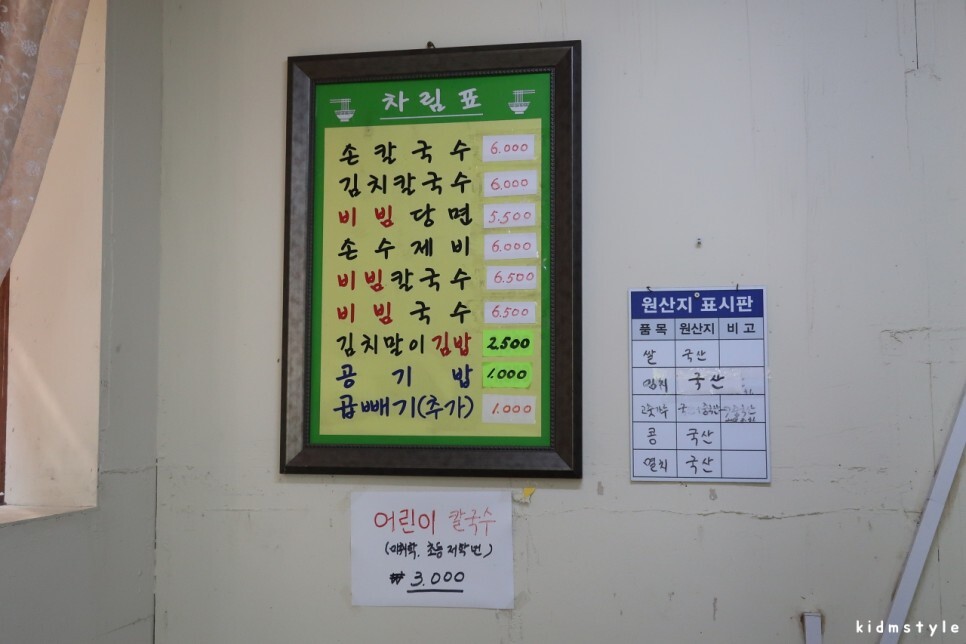 차림표
손칼국수 6.000
김치칼국수 6.000
비빔당면 5.500
손수제비 6.000
비빔칼국수 6.500
비빔국수 6.500
김치말이김밥 2.500
공기밥 1.000
곱빼기(추가) 1.000
어린이 칼국수
(미취학, 초등 저학년)
₩ 3.000
원산지 표시판
품목 원산지 비고
쌀 국산
국산
고춧가루
콩 국산
멸치 국산
kidmstyle